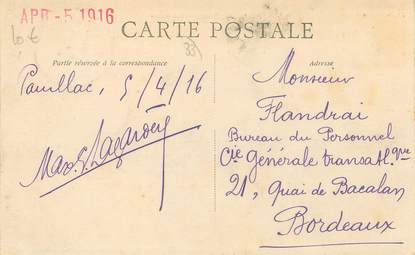 APR - 5 1916
CARTE POSTALE
10 €
33
Partie réservée à la correspondance
Adresse
Pauillac, 5/4/16
Monsieur
Flandrai
Bureau du Personnel
Cie Générale transatl.que
21, Quai de Bacalan
Bordeaux